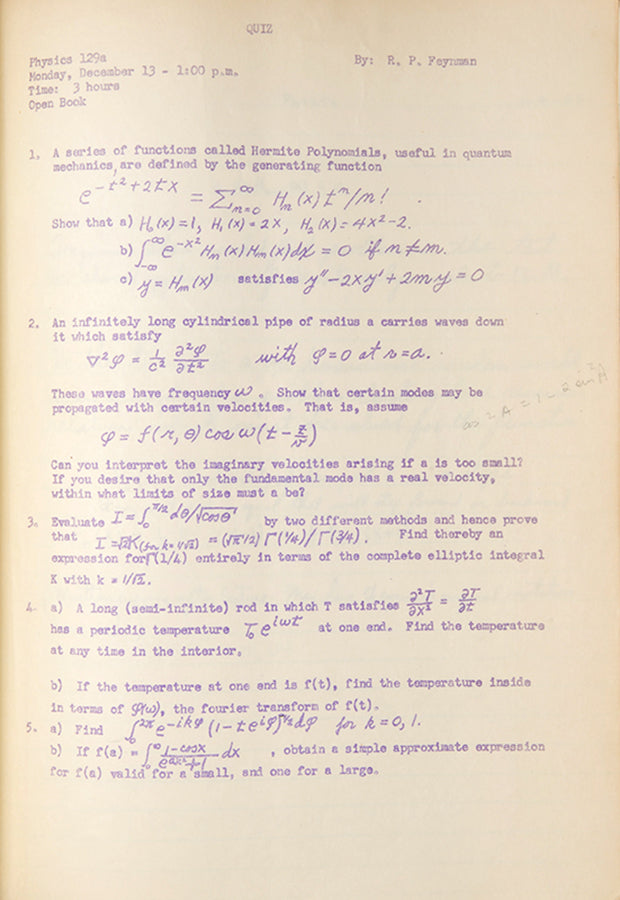 QUIZ
Physics 129a
By: R. P. Feynman
Monday, December 13 - 1:00 p.m.
Time: 3 hours
Open Book
1. A series of functions called Hermite Polynomials, useful in quantum
mechanics, are defined by the generating function
e^{-t²+2tx} = Σ_{n=0}^∞ Hₙ(x) tⁿ/n! .
Show that a) H₀(x)=1, H₁(x)=2x, H₂(x)=4x²-2.
b) ∫_{-∞}^∞ e^{-x²} Hₙ(x) Hₘ(x) dx = 0 if n≠m.
c) y = Hₘ(x) satisfies y″-2xy′+2my = 0
2. An infinitely long cylindrical pipe of radius a carries waves down
it which satisfy
∇²φ = 1/c² ∂²φ/∂t² with φ=0 at r=a.
These waves have frequency ω. Show that certain modes may be
propagated with certain velocities. That is, assume
cos 2A = 1 - 2 sin²A
φ = f(r,θ) cos ω(t - z/v)
Can you interpret the imaginary velocities arising if a is too small?
If you desire that only the fundamental mode has a real velocity,
within what limits of size must a be?
3. Evaluate I = ∫_0^{π/2} dθ/√cosθ by two different methods and hence prove
that I = √2K(for k=1/√2) = (√π/2) Γ(1/4)/Γ(3/4). Find thereby an
expression for Γ(1/4) entirely in terms of the complete elliptic integral
K with k = 1/√2.
4. a) A long (semi-infinite) rod in which T satisfies ∂²T/∂x² = ∂T/∂t
has a periodic temperature T₀e^{iωt} at one end. Find the temperature
at any time in the interior.
b) If the temperature at one end is f(t), find the temperature inside
in terms of φ(ω), the fourier transform of f(t).
5. a) Find ∫_0^{2π} e^{-ikφ} (1-te^{iφ})^{1/2} dφ for k=0, 1.
b) If f(a) = ∫_0^∞ (1-cosx)/(e^{ax²}+1) dx , obtain a simple approximate expression
for f(a) valid for a small, and one for a large.